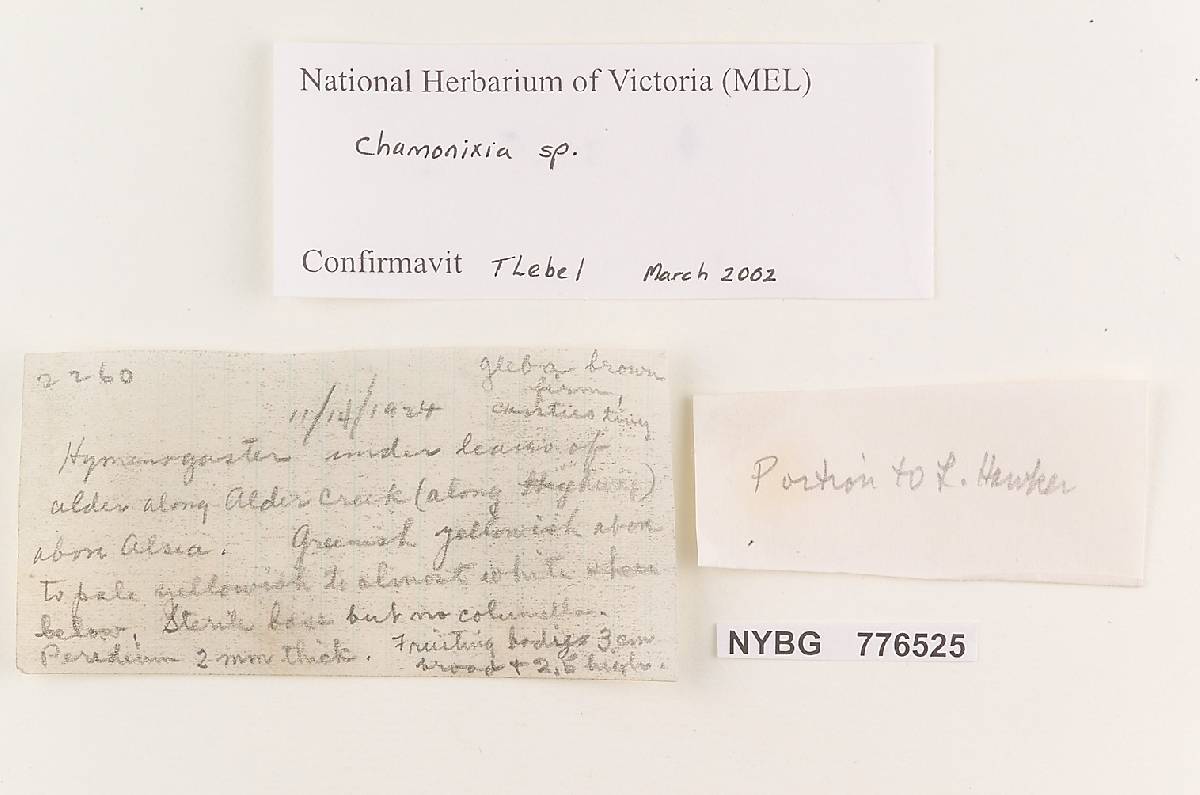 National Herbarium of Victoria (MEL)
Chamonixia sp.
Confirmavit TLebel March 2002
2260
gleba brown
firm,
cavities tiny
11/14/1924
Hymenogaster under leaves of
alder along Alder Creek (along Highway)
above Alsea. Greenish yellowish above
to pale yellowish to almost white where
below. Sterile base but no columella.
Peridium 2 mm thick. Fruiting bodies 3 cm
broad + 2.5 high.
Portion to L. Hawker
NYBG 776525